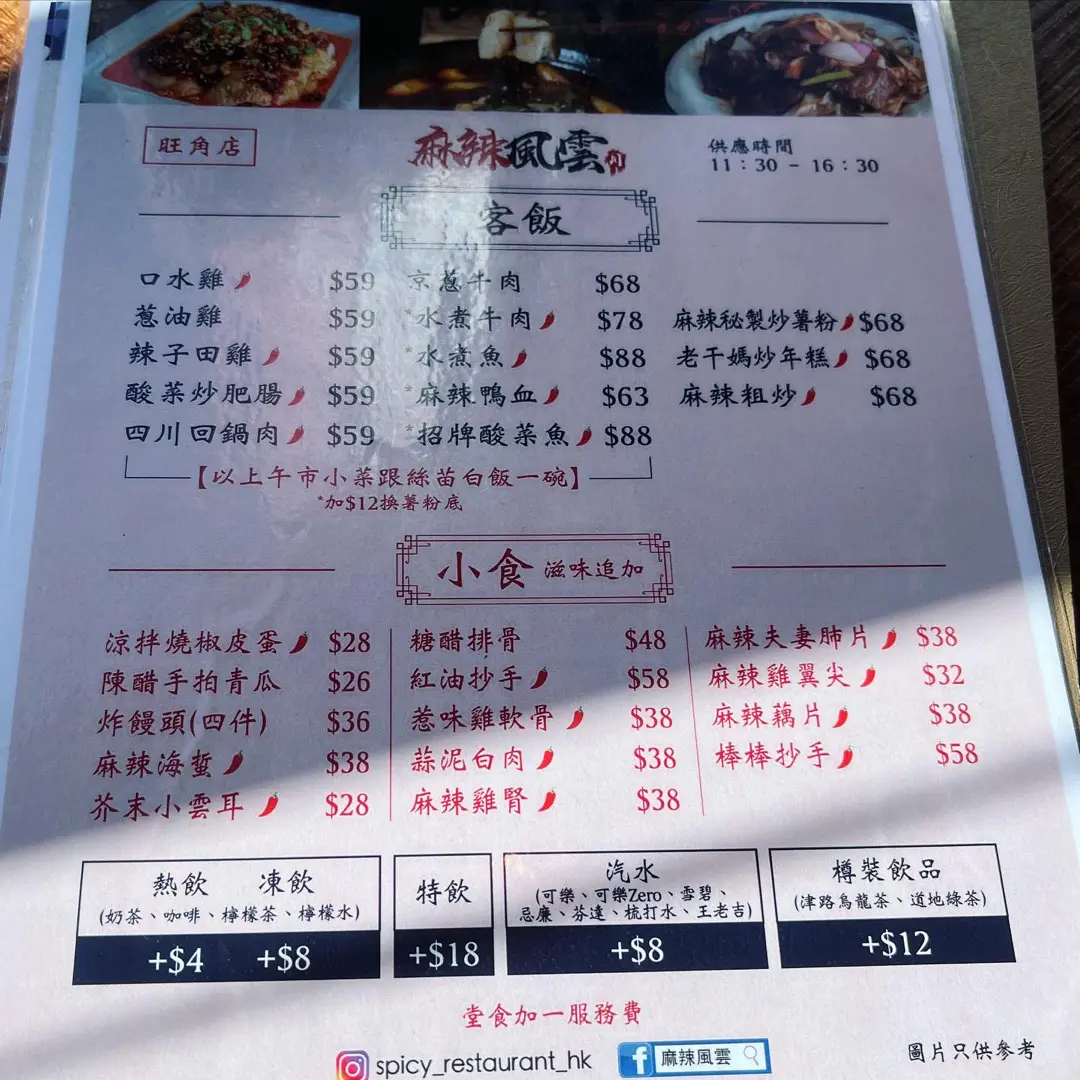 旺角店
麻辣風雲
供應時間
11：30 - 16：30
客飯
口水雞 $59
蔥油雞 $59
辣子田雞 $59
酸菜炒肥腸 $59
四川回鍋肉 $59
京蔥牛肉 $68
*水煮牛肉 $78
*水煮魚 $88
*麻辣鴨血 $63
*招牌酸菜魚 $88
麻辣秘製炒薯粉 $68
老干媽炒年糕 $68
麻辣粗炒 $68
【以上午市小菜跟絲苗白飯一碗】
*加$12換薯粉底
小食 滋味追加
涼拌燒椒皮蛋 $28
陳醋手拍青瓜 $26
炸饅頭(四件) $36
麻辣海蜇 $38
芥末小雲耳 $28
糖醋排骨 $48
紅油抄手 $58
惹味雞軟骨 $38
蒜泥白肉 $38
麻辣雞腎 $38
麻辣夫妻肺片 $38
麻辣雞翼尖 $32
麻辣藕片 $38
棒棒抄手 $58
熱飲 凍飲
(奶茶、咖啡、檸檬茶、檸檬水)
+$4 +$8
特飲
+$18
汽水
(可樂、可樂Zero、雪碧、
忌廉、芬達、梳打水、王老吉)
+$8
樽裝飲品
(津路烏龍茶、道地綠茶)
+$12
堂食加一服務費
spicy_restaurant_hk
麻辣風雲
圖片只供參考